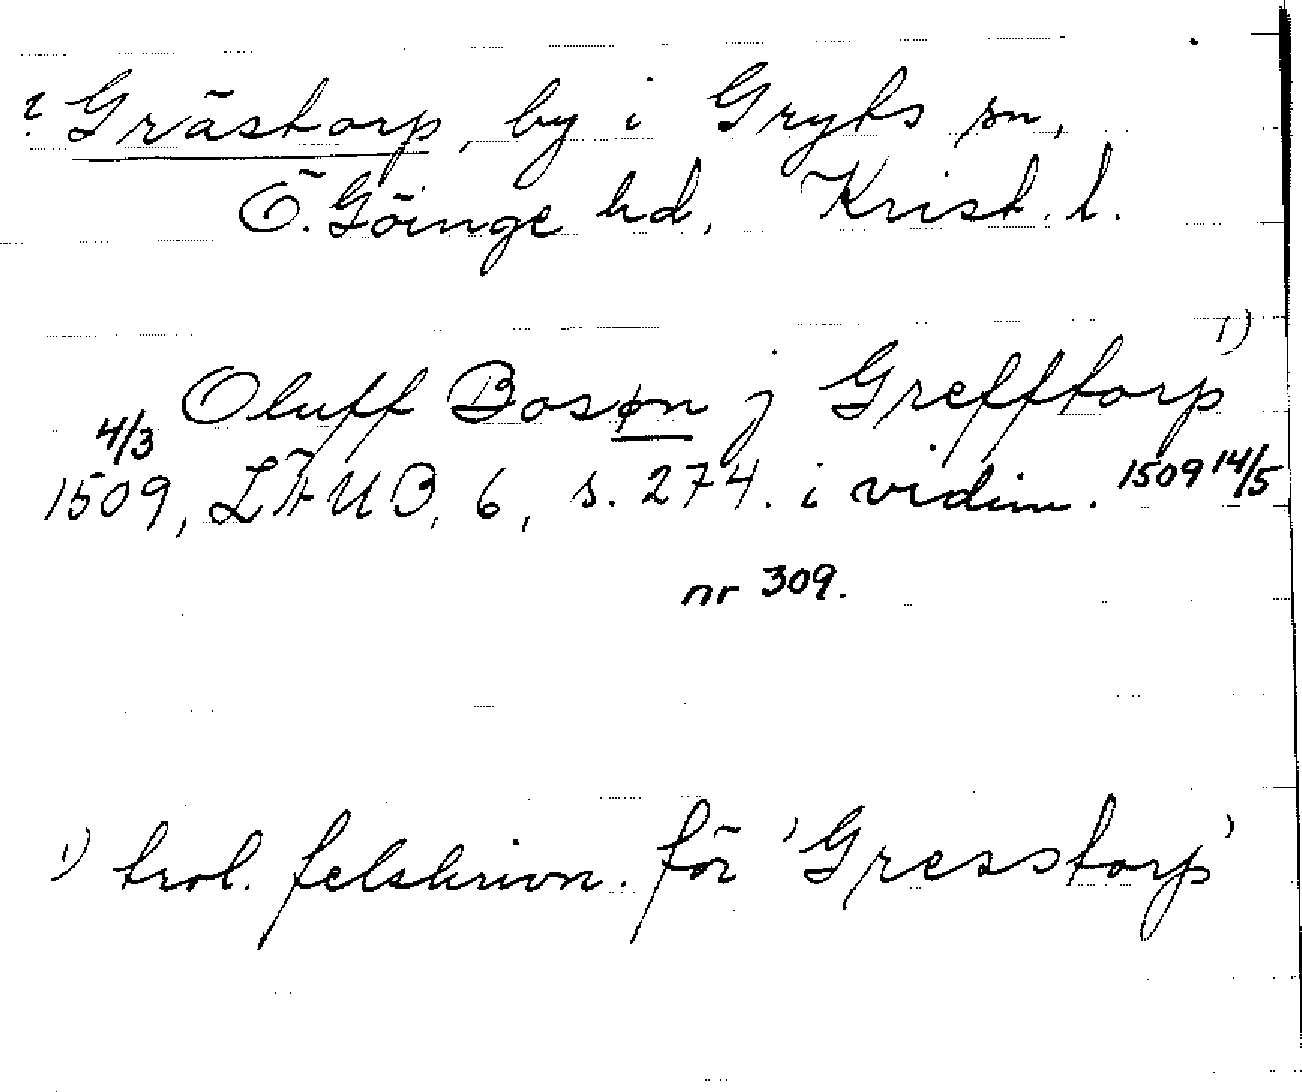 ? Grästorp, by i Gryts sn,
Ö. Göinge hd, Krist. l.
Oluff Bosøn j Grefftorp 1)
4/3
1509, LÄUB, 6, s. 274. i vidim. 1509 14/5
nr 309.
1) trol. felskrivn. för 'Gresstorp'